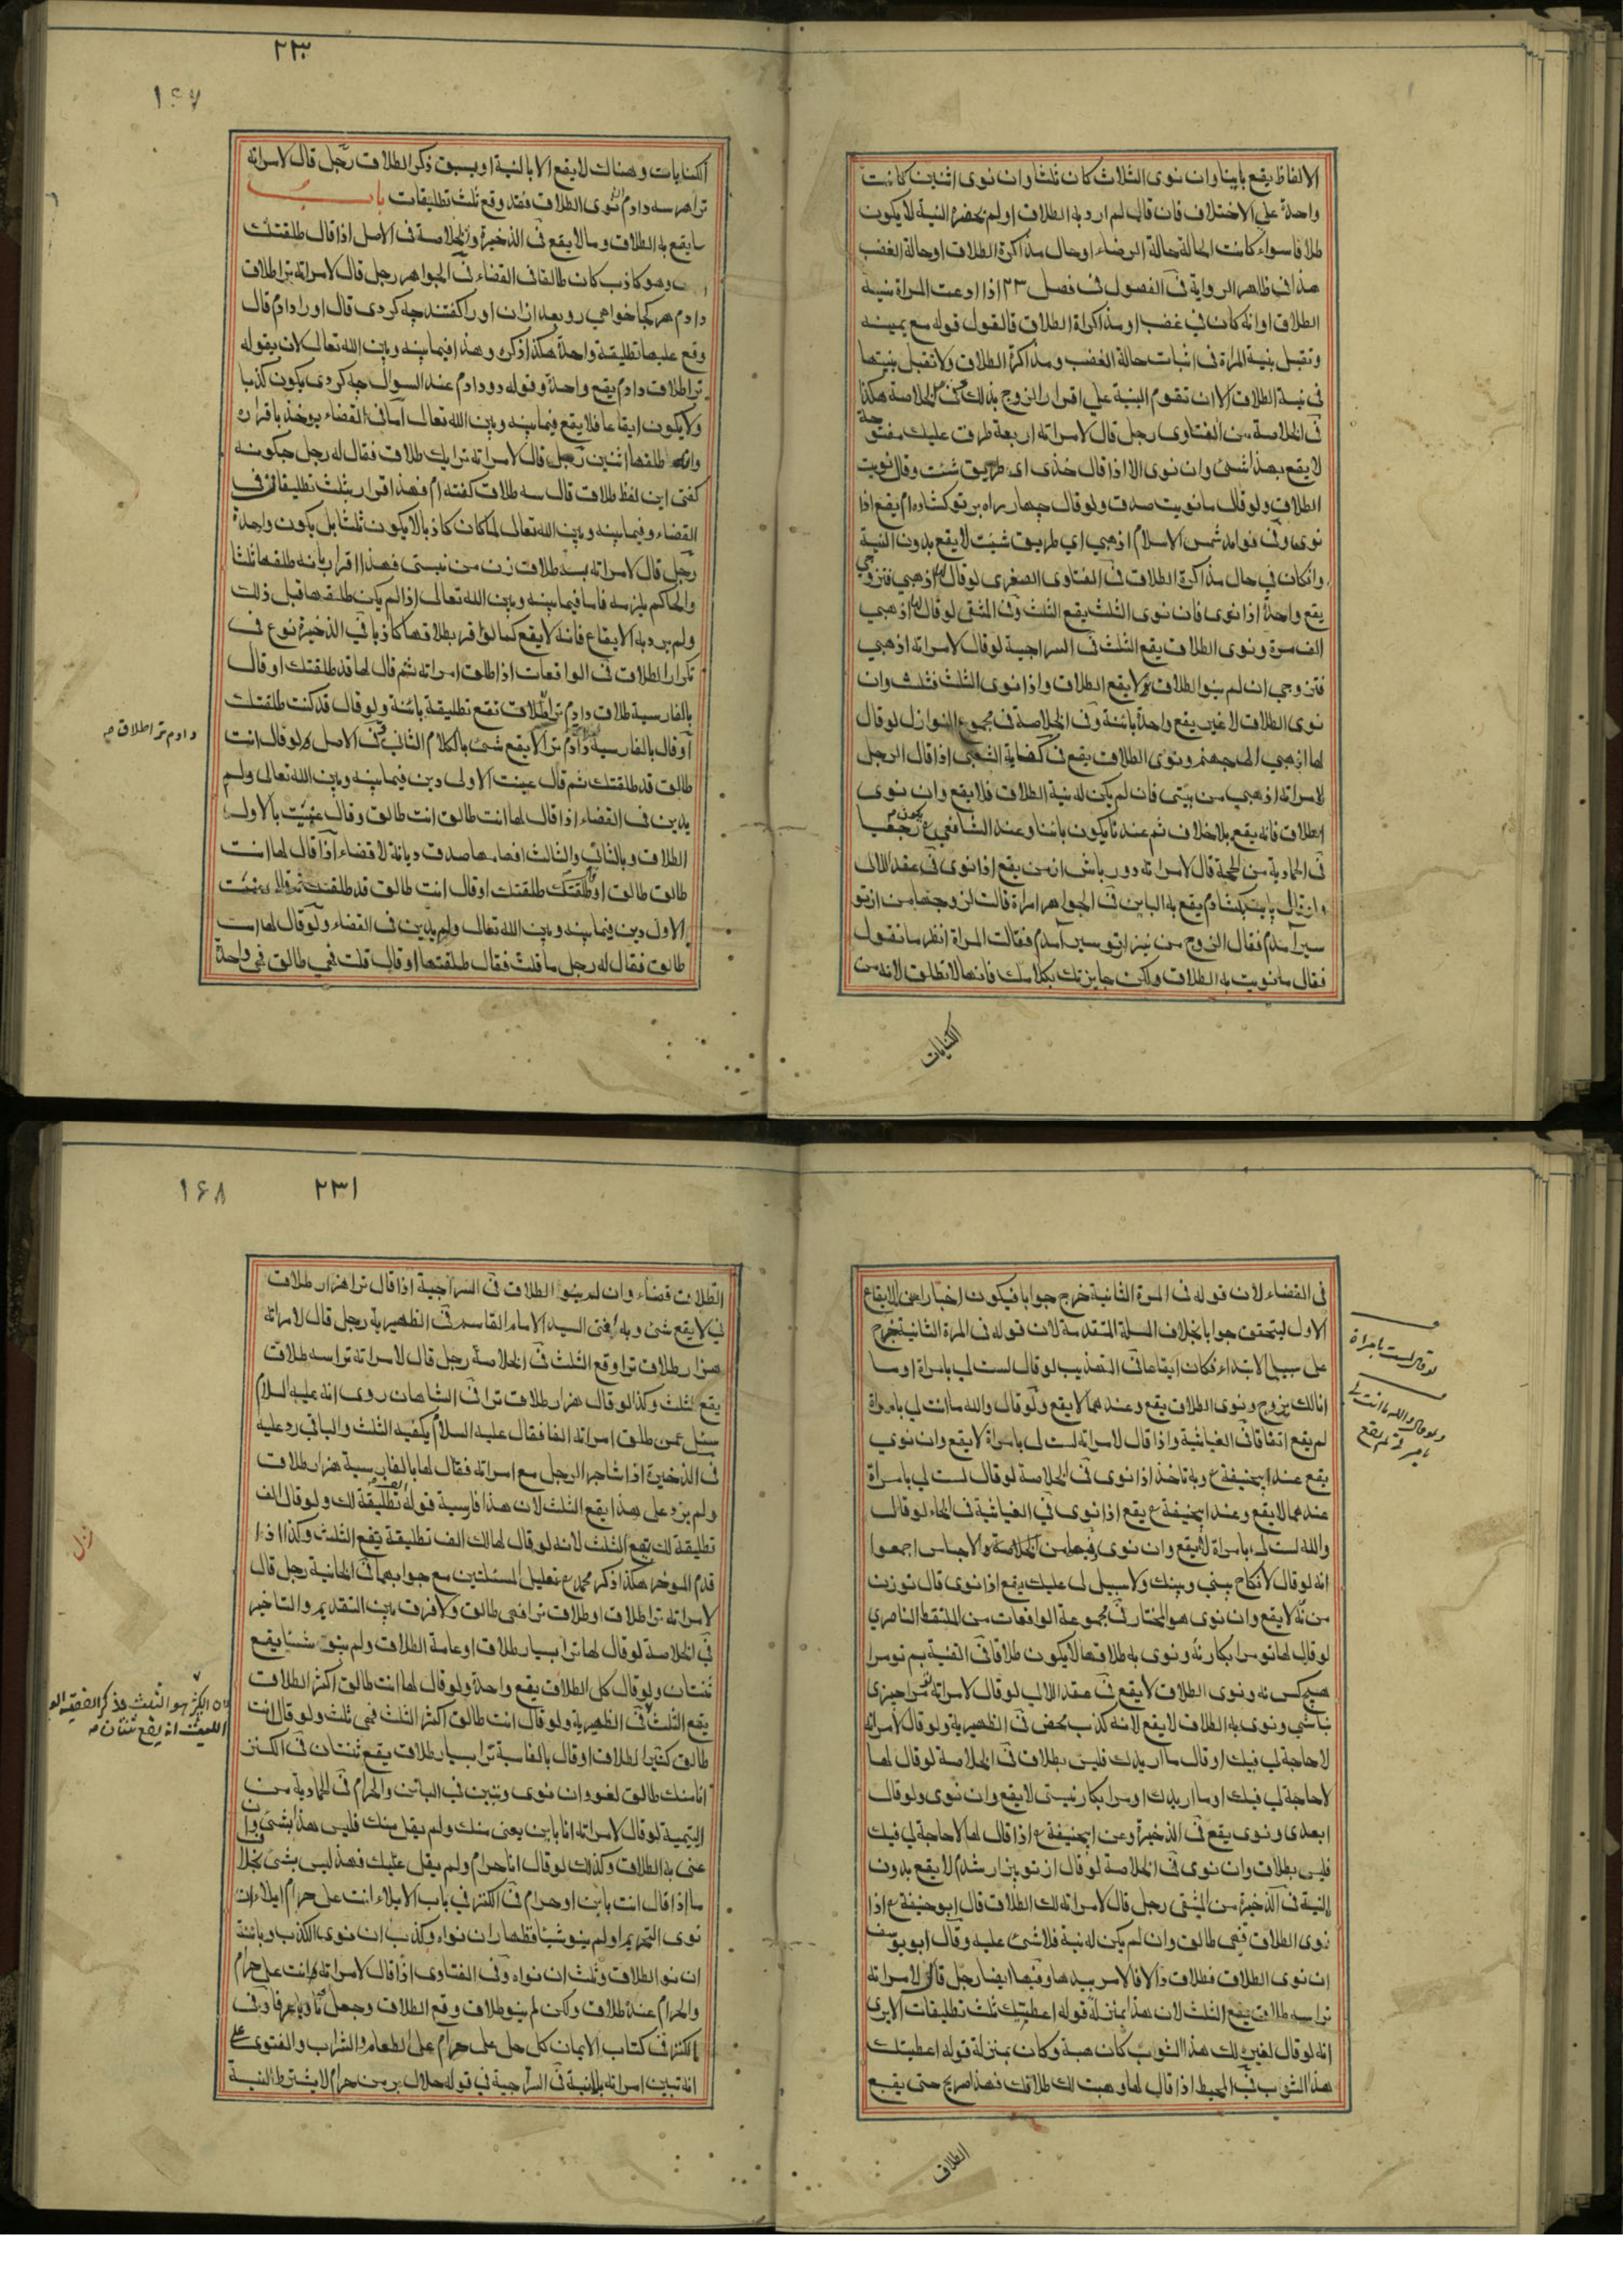 الالفاظ يقع باينا وان نوى الثلاث كان ثلثا وان نوى اثنين كانت
واحدة علي الاختلاف فان قال لم ارد به الطلاق او لم تحضره النية لا يكون
طلاقا سواء كانت الحالة حالة الرضاء او حال مذاكرة الطلاق او حالة الغضب
هذا في ظاهر الرواية في الفصول في فصل ٢٣ اذا ادعت المراة نية
الطلاق او انه كان في غضب او مذاكرة الطلاق فالقول قوله مع يمينه
وتقبل بنية المراة في اثبات حالة الغضب ومذاكرة الطلاق ولا تقبل بنيتها
في نية الطلاق الا ان تقوم البنية علي اقرار الزوج بذلك في الخلاصة هكذا
في الخلاصة من الفتاوى رجل قال لامراته اربعة طرق عليك مفتوحة
لا يقع بهذا شئ وان نوى الا اذا قال خذى اى طريق شئت وقال نويت
الطلاق ولو قال ما نويت صدق ولو قال چهار راه بر تو كشاده ام يقع اذا
نوى وفي فوايد شمس الاسلام اذهبي اي طريق شئت لا يقع بدون النية
وانكان في حال مذاكرة الطلاق في الفتاوى الصغرى لو قال لها اذهبي فتزوجي
يقع واحدة اذا نوى فان نوى الثلث يقع الثلث وفي المنتقى لو قال لها اذهبي
الف مرة ونوى الطلاق يقع الثلث في السراجية لو قال لامراته اذهبي
فتزوجي ان لم ينو الطلاق لا يقع الطلاق واذا نوى الثلث فثلث وان
نوى الطلاق لا غير يقع واحدة بائنة وفي الخلاصة في مجموع النوازل لو قال
لها اذهبي الى جهنم ونوى الطلاق يقع في كفاية الشعبى اذا قال الرجل
لامراته اذهبي من بيتى فان لم يكن له نية الطلاق فلا يقع وان نوى
الطلاق فانه يقع بلا خلاف ثم عندنا يكون بائنا وعند الشافعي يكون رجعيا
في الحمادية من الحجة قال لامراته دور باش از من يقع اذا نوى في عقد اللالى
سير آمدم فقال الزوج من نيز از تو سير آمدم فقالت المراة انظر ما تقول
فقال ما نويت به الطلاق ولكن جازيتك بكلامك فانها لا تطلق لانه من
الكنايات
٢٣٠
١٦٧
الكنايات وهناك لا يقع الا بالنية او بسبق ذكر الطلاق رجل قال لامراته
ترا هر سه دادم ان نوى الطلاق فقد وقع ثلث تطليقات باب
ما يقع به الطلاق وما لا يقع في الذخيرة والخلاصة في الاصل اذا قال طلقتك
وهو كاذب كان طالقا في القضاء في الجواهر رجل قال لامراته ترا طلاق
دادم هر كجا خواهي رو بعد ازان اورا كفتند چه كردى قال اورا دادم قال
وقع عليها تطليقة واحدة هكذا ذكر وهذا فيما بينه وبين الله تعالى لان بقوله
ترا طلاق دادم يقع واحدة وقوله دودادم عند السوال چه كردى يكون كذبا
ولا يكون ايقاعا فلا يقع فيما بينه وبين الله تعالى اما في القضاء يوخذ باقراره
وانه طلقها اثنين رجل قال لامراته ترا يك طلاق فقال له رجل چكونه
كفتى اين لفظ طلاق قال سه طلاق كفته ام فهذا اقرار بثلث تطليقات في
القضاء وفيما بينه وبين الله تعالى لما كان كاذبا لا يكون ثلثا بل يكون واحدة
رجل قال لامراته بسه طلاق زن من نيستى فهذا اقرار بانه طلقها ثلثا
والحاكم يلزمه فاما فيما بينه وبين الله تعالى اذا لم يكن طلقها قبل ذلك
ولم يرد به الايقاع فانه لا يقع كما لو اقر بطلاقها كاذبا في الذخيرة نوع في
تكرار الطلاق في الواقعات اذا طلق امراته ثم قال لها قد طلقتك او قال
بالفارسية طلاق دادم ترا طلاق تقع تطليقة بائنة ولو قال قد كنت طلقتك
او قال بالفارسية دادم ترا لا يقع شئ بالكلام الثاني في الاصل ولو قال انت
دادم ترا طلاق صح
طالق قد طلقتك ثم قال عنيت الاولى دين فيما بينه وبين الله تعالى ولم
يدين في القضاء اذا قال لها انت طالق انت طالق وقال عنيت بالاول
الطلاق وبالثاني والثالث افهامها صدق ديانة لا قضاء اذا قال لها انت
طالق طالق او طلقتك طلقتك او قال انت طالق قد طلقتك ثم قال عنيت
الاول دين فيما بينه وبين الله تعالى ولم يدين في القضاء ولو قال لها انت
طالق فقال له رجل ما قلت فقال طلقتها او قال قلت هي طالق فهي واحدة
في القضاء لان قوله في المرة الثانية خرج جوابا فيكون اخبارا عن الايقاع
الاول ليتحقق جوابا بخلاف المسئلة المتقدمة لان قوله في المرة الثانية خرج
على سبيل الابتداء فكان ايقاعا في التهذيب لو قال لست لي بامراة او ما
لو قال لست بامراة
انا لك بزوج ونوى الطلاق يقع وعندهما لا يقع ولو قال والله ما انت لي بامراة
ولو قال والله ما انت لي
بامراة لم يقع
لم يقع اتفاقا في الغياثية واذا قال لامراته لست لى بامراة لا يقع وان نوي
يقع عند ابيحنيفة وبه ناخذ اذا نوى في الخلاصة لو قال لست لي بامراة
عندهما لا يقع وعند ابيحنيفة يقع اذا نوى في الغياثية في الحاء لو قال
والله لست لى بامراة لا يقع وان نوى فيها من الخلاصة والاجناس اجمعوا
انه لو قال لا نكاح بيني وبينك ولا سبيل لى عليك يقع اذا نوى قال تو زن
من نه لا يقع وان نوى هو المختار في مجموعة الواقعات من الملتقط الناصري
لو قال لها تو مرا بكار نه ونوى به طلاقها لا يكون طلاقا في القنية بم تو مرا
هيچ كس نه ونوى الطلاق لا يقع في عقد اللالى لو قال لامراته تو مرا چيزى
نباشي ونوى به الطلاق لا يقع لانه كذب محض في الظهيرية ولو قال لامراته
لا حاجة لي فيك او قال ما اريدك فليس بطلاق في الخلاصة لو قال لها
لا حاجة لي فيك او ما اريدك او مرا بكار نيستى لا يقع وان نوى ولو قال
ابعدى ونوى يقع في الذخيرة وعن ابيحنيفة اذا قال لها لا حاجة لي فيك
فليس بطلاق وان نوى في الخلاصة لو قال از تو بيزار شدم لا يقع بدون
النية في الذخيرة من المنتقى رجل قال لامراته لك الطلاق قال ابو حنيفة اذا
نوى الطلاق فهي طالق وان لم يكن له نية فلا شئ عليه وقال ابو يوسف
ان نوى الطلاق فطلاق والا فالامر بيدها وفيها ايضا رجل قال لامراته
ترا سه طلاق يقع الثلث لان هذا بمنزلة قوله اعطيتك ثلث تطليقات الا يرى
انه لو قال لغيره لك هذا الثوب كان هبة وكان بمنزلة قوله اعطيتك
هذا الثوب في المحيط اذا قال لها وهبت لك طلاقك فهذا صريح حتى يقع
الطلاق
٢٣١
١٦٨
الطلاق قضاء وان لم ينو الطلاق في السراجية اذا قال ترا هزار طلاق
ني لا يقع شئ وبه افتى السيد الامام القاسم في الظهيرية رجل قال لامراته
هزار طلاق ترا وقع الثلث في الخلاصة رجل قال لامراته ترا سه طلاق
يقع الثلث وكذا لو قال هزار طلاق ترا في الشاهان روى انه عليه السلام
سئل عمن طلق امراته الفا فقال عليه السلام يكفيه الثلث والباقي رد عليه
في الذخيرة اذا شاجر الرجل مع امراته فقال لها بالفارسية هزار طلاق
ولم يزد على هذا يقع الثلث لان هذا فارسية قوله تطليقة لك ولو قال الف
تطليقة لك يقع الثلث لانه لو قال لها لك الف تطليقة يقع الثلث وكذا اذا
قدم الموخر هكذا ذكر محمد تعليل المسئلتين مع جوابهما في الخانية رجل قال
لامراته ترا طلاق او طلاق ترا فهي طالق ولا فرق بين التقديم والتاخير
في الخلاصة لو قال لها ترا بسيار طلاق او عامة الطلاق ولم ينو شيئا يقع
ثنتان ولو قال كل الطلاق يقع واحدة ولو قال لها انت طالق اكثر الطلاق
يقع الثلث في الظهيرية ولو قال انت طالق اكثر الثلث فهي ثلث ولو قال انت
لان الكثير هو الثلث وذكر الفقيه ابو
الليث انه يقع ثنتان صح
طالق كثيرا لطلاق او قال بالفارسية ترا بسيار طلاق يقع ثنتان في الكنز
انا منك طالق لغو وان نوى وتبين في البائن والحرام في الحمادية من
اليتيمة لو قال لامراته انا باين يعنى منك ولم يقل منك فليس هذا بشئ وان
عنى به الطلاق وكذلك لو قال انا حرام ولم يقل عليك فهذا ليس بشئ بخلاف
ما اذا قال انت باين او حرام في الكنز في باب الايلاء انت على حرام ايلاء ان
نوى التحريم او لم ينو شيئا وظهار ان نواه وكذب ان نوى الكذب وبائنة
ان نو الطلاق وثلث ان نواه وفي الفتاوى اذا قال لامراته انت على حرام
والحرام عنده طلاق ولكن لم ينو طلاق وقع الطلاق وجعل ناويا عرفا وفي
الكنز في كتاب الايمان كل حل على حرام على الطعام والشراب والفتوى على
انه تبين امراته بلا نية في السراجية في قوله حلال بر من حرام لا يشترط النية